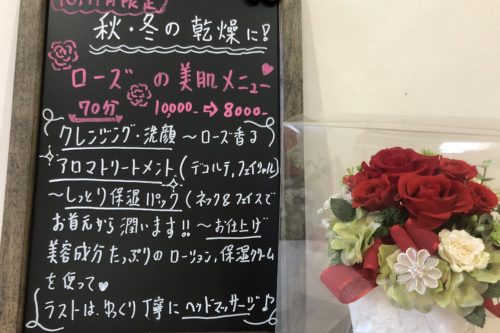 10,11月限定
秋・冬の乾燥に!
ローズの美肌メニュー♥
70分 10000- ⇒ 8000-
クレンジング・洗顔 〜ローズ香る
アロマトリートメント (デコルテ,フェイシャル)
〜しっとり保湿パック (ネック&フェイスで
お首元から潤います!! 〜お仕上げ
美容成分たっぷりのローション,保湿クリーム
を使って♥
ラストは、ゆっくり丁寧にヘッドマッサージ♪